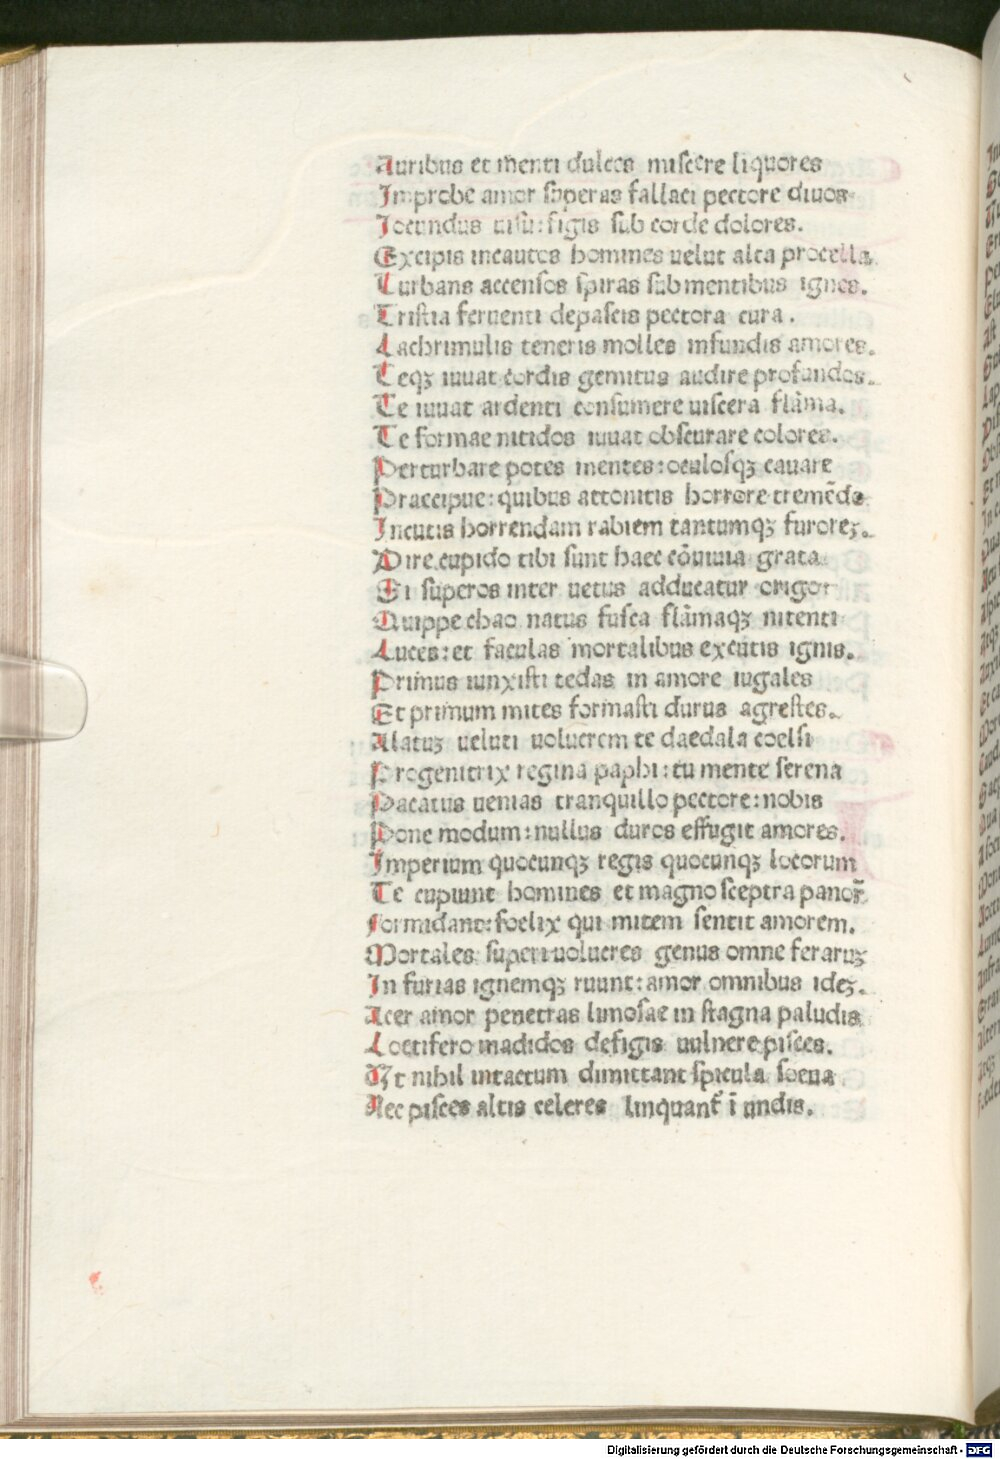 Auribus et menti dulces miscere liquores
Improbe amor superas fallaci pectore diuos
Iocundus uisu: figis sub corde dolores.
Excipis incautos homines uelut alta procella.
Turbans accensos spiras sub mentibus ignes.
Tristia feruenti depascis pectora cura.
Lachrimulis teneris molles infundis amores.
Teqꝫ iuuat cordis gemitus audire profundos.
Te iuuat ardenti consumere uiscera flāma.
Te formae nitidos iuuat obscurare colores.
Perturbare potes mentes: oculosqꝫ cauare
Praecipue: quibus attonitis horrore tremēdo
Incutis horrendam rabiem tantumqꝫ furoreꝫ.
Dire cupido tibi sunt haec cōuiuia grata
Si superos inter uetus adducatur origo
Quippe chao natus fusca flāmaqꝫ nitenti
Luces: et faculas mortalibus excutis ignis.
Primus iunxisti tedas in amore iugales
Et primum mites formasti durus agrestes.
Alatuꝫ ueluti uolucrem te daedala coelsi
Progenitrix regina paphi: tu mente serena
Pacatus uenias tranquillo pectore: nobis
Pone modum: nullus duros effugit amores.
Imperium quocunqꝫ regis quocunqꝫ locorum
Te cupiunt homines et magno sceptra panor̄
Formidant: foelix qui mitem sentit amorem.
Mortales: superi uolucres genus omne feraruꝫ
In furias ignemqꝫ ruunt: amor omnibus ideꝫ.
Acer amor penetras limosae in stagna paludis
Loetifero madidos defigis uulnere pisces.
Ut nihil intactum dimittant spicula soeua
Nec pisces altis celeres linquant̄ ī undis.
Digitalisierung gefördert durch die Deutsche Forschungsgemeinschaft - DFG